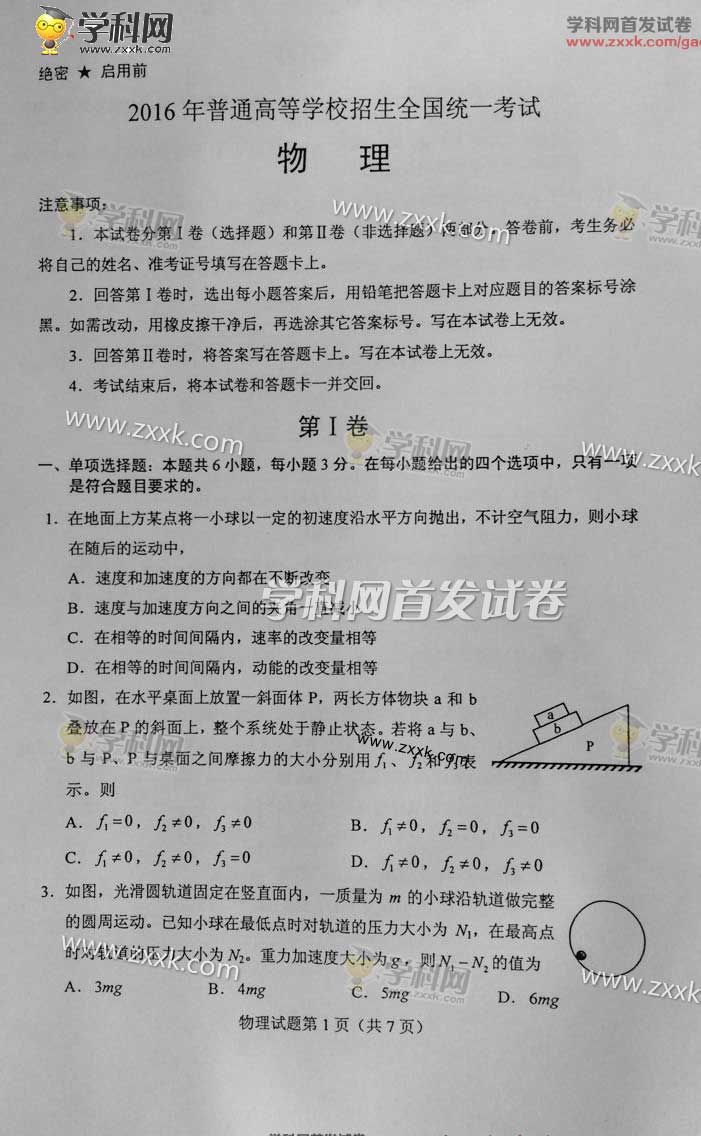 学科网
www.zxxk.com
学科网首发试卷
www.zxxk.com/gao
绝密 ★ 启用前
2016年普通高等学校招生全国统一考试
物 理
注意事项：
1．本试卷分第Ⅰ卷（选择题）和第Ⅱ卷（非选择题）两部分。答卷前，考生务必
将自己的姓名、准考证号填写在答题卡上。
2．回答第Ⅰ卷时，选出每小题答案后，用铅笔把答题卡上对应题目的答案标号涂
黑。如需改动，用橡皮擦干净后，再选涂其它答案标号。写在本试卷上无效。
3．回答第Ⅱ卷时，将答案写在答题卡上。写在本试卷上无效。
4．考试结束后，将本试卷和答题卡一并交回。
第Ⅰ卷
一、单项选择题：本题共6小题，每小题3分。在每小题给出的四个选项中，只有一项
是符合题目要求的。
1．在地面上方某点将一小球以一定的初速度沿水平方向抛出，不计空气阻力，则小球
在随后的运动中，
A．速度和加速度的方向都在不断改变
B．速度与加速度方向之间的夹角一直减小
学科网首发试卷
C．在相等的时间间隔内，速率的改变量相等
D．在相等的时间间隔内，动能的改变量相等
2．如图，在水平桌面上放置一斜面体 P，两长方体物块 a 和 b
叠放在 P 的斜面上，整个系统处于静止状态。若将 a 与 b、
b 与 P、P 与桌面之间摩擦力的大小分别用 f₁、f₂ 和 f₃ 表
示。则
a
b
P
A．f₁=0，f₂≠0，f₃≠0 B．f₁≠0，f₂=0，f₃=0
C．f₁≠0，f₂≠0，f₃=0 D．f₁≠0，f₂≠0，f₃≠0
3．如图，光滑圆轨道固定在竖直面内，一质量为 m 的小球沿轨道做完整
的圆周运动。已知小球在最低点时对轨道的压力大小为 N₁，在最高点
时对轨道的压力大小为 N₂。重力加速度大小为 g，则 N₁－N₂ 的值为
A．3mg B．4mg C．5mg D．6mg
物理试题第 1 页（共 7 页）